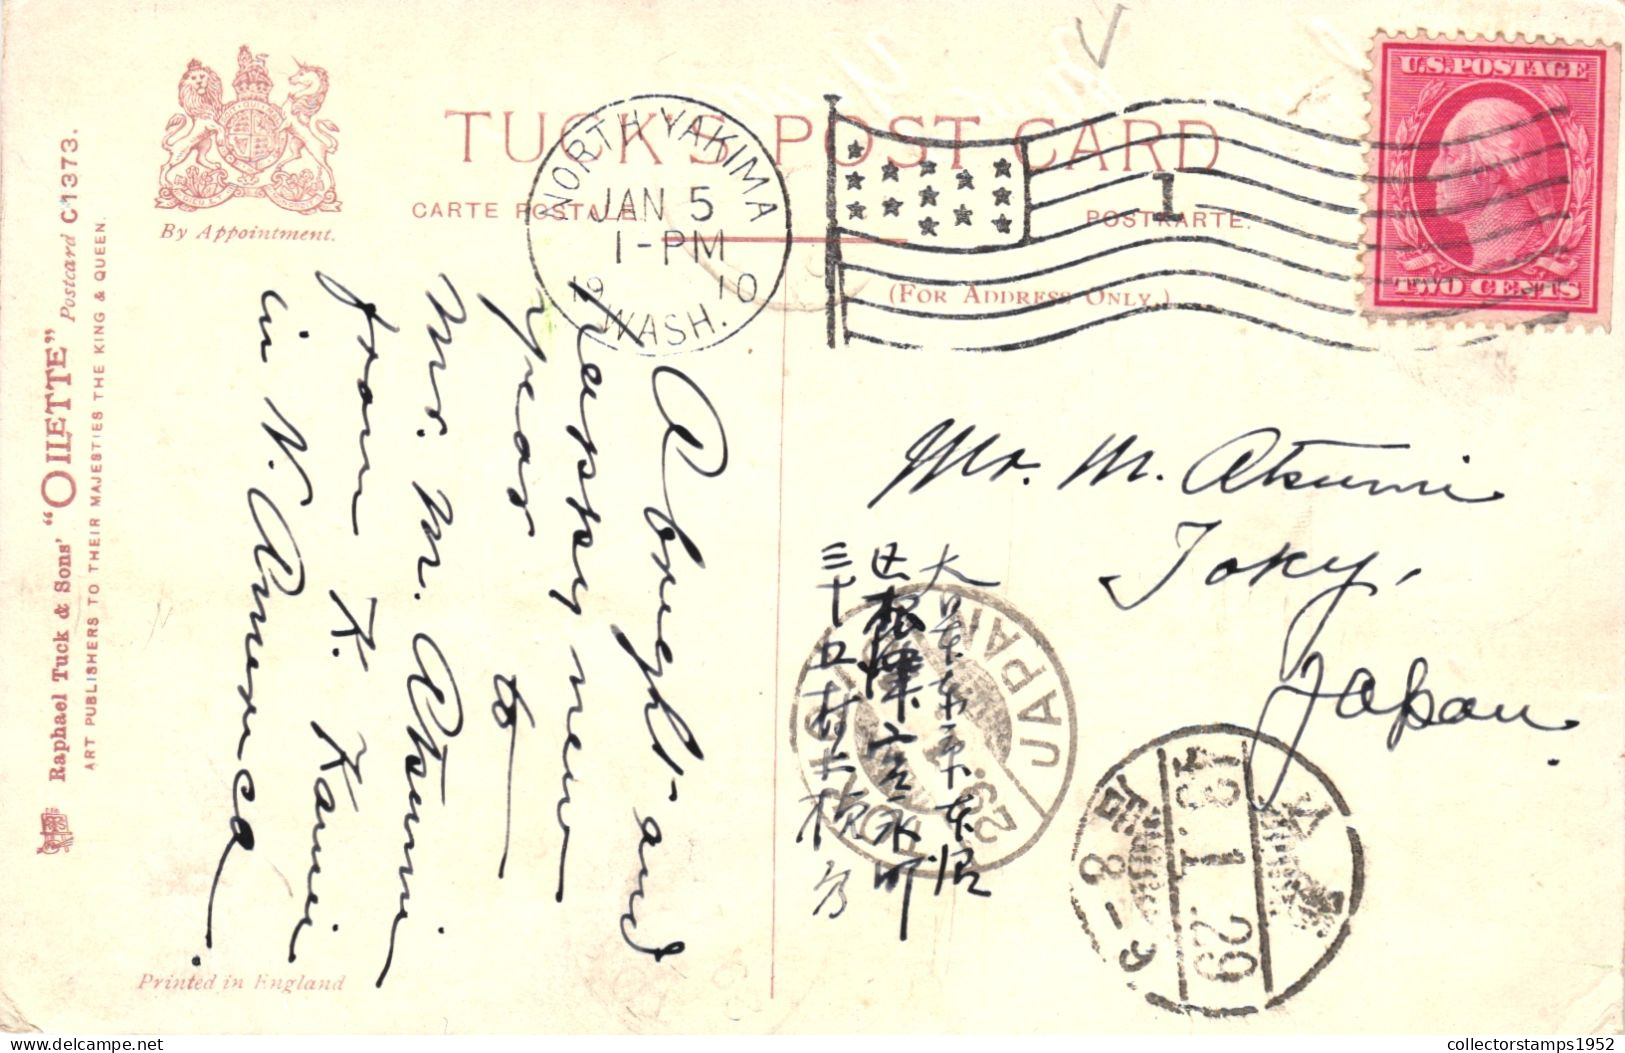 TUCK'S POST CARD
CARTE POSTALE
POSTKARTE.
(FOR ADDRESS ONLY.)
By Appointment.
Raphael Tuck & Sons' "OILETTE" Postcard C1373.
ART PUBLISHERS TO THEIR MAJESTIES THE KING & QUEEN.
Printed in England
NORTH YAKIMA
JAN 5
1-PM
19 10
WASH.
1
U.S. POSTAGE
TWO CENTS
A bright and
happy new
year
to
Mr. M. Atsumi
from K. Kamei
in N. America
Mr. M. Atsumi
Tokyo,
Japan.
大日本東京本
区根津
町
三十五
JAPAN
43.1.29
collectorstamps1952